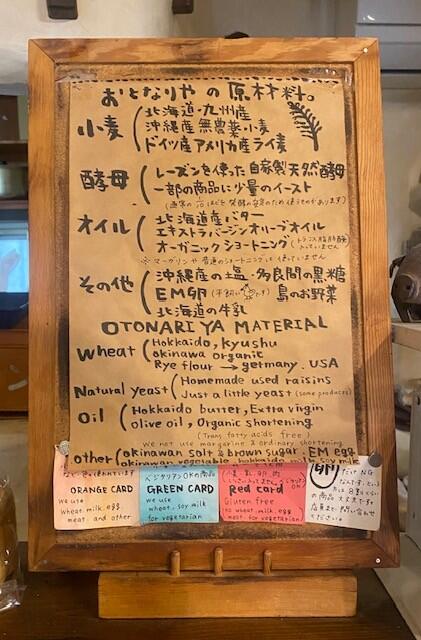 おとなりやの原材料。
小麦
北海道・九州産
沖縄産 無農薬小麦
ドイツ産アメリカ産ライ麦
酵母
レーズンを使った自家製天然酵母
一部の商品に少量のイースト
オイル
北海道産バター
エキストラバージンオリーブオイル
オーガニックショートニング
※マーガリンや普通のショートニングは使っていません
その他
沖縄産の塩・多良間の黒糖
EM卵(平飼い です) 島のお野菜
北海道の牛乳
OTONARIYA MATERIAL
Wheat
Hokkaido, kyushu
okinawa organic
Rye flour → germany, USA
Natural yeast
Homemade used raisins
Just a little yeast (some produces)
Oil
Hokkaido butter, Extra virgin
olive oil, Organic shortening
(Trans fatty acids free)
We not use margarine & ordinary shortening
other (okinawan salt & brown sugar. EM egg
okinawan vegetable. hokkaido milk. soy milk
ORANGE CARD
we use
wheat. milk. egg.
meat. and other
ベジタリアンOKの商品
GREEN CARD
we use
wheat. soy milk
for vegetarian
Red card
Gluten free
no wheat. milk. egg.
for vegetarian
卵
だけNG
の商品
大丈夫です。
店員まで 問い合せ
ください。